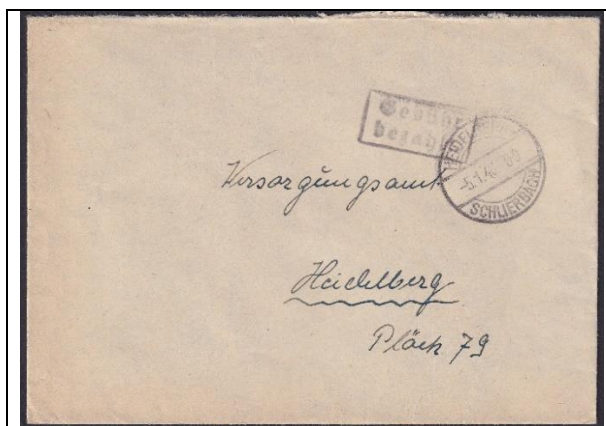 Gebühr
bezahlt
HEIDELBERG
SCHLIERBACH
Versorgungsamt
Heidelberg
Plöck 79